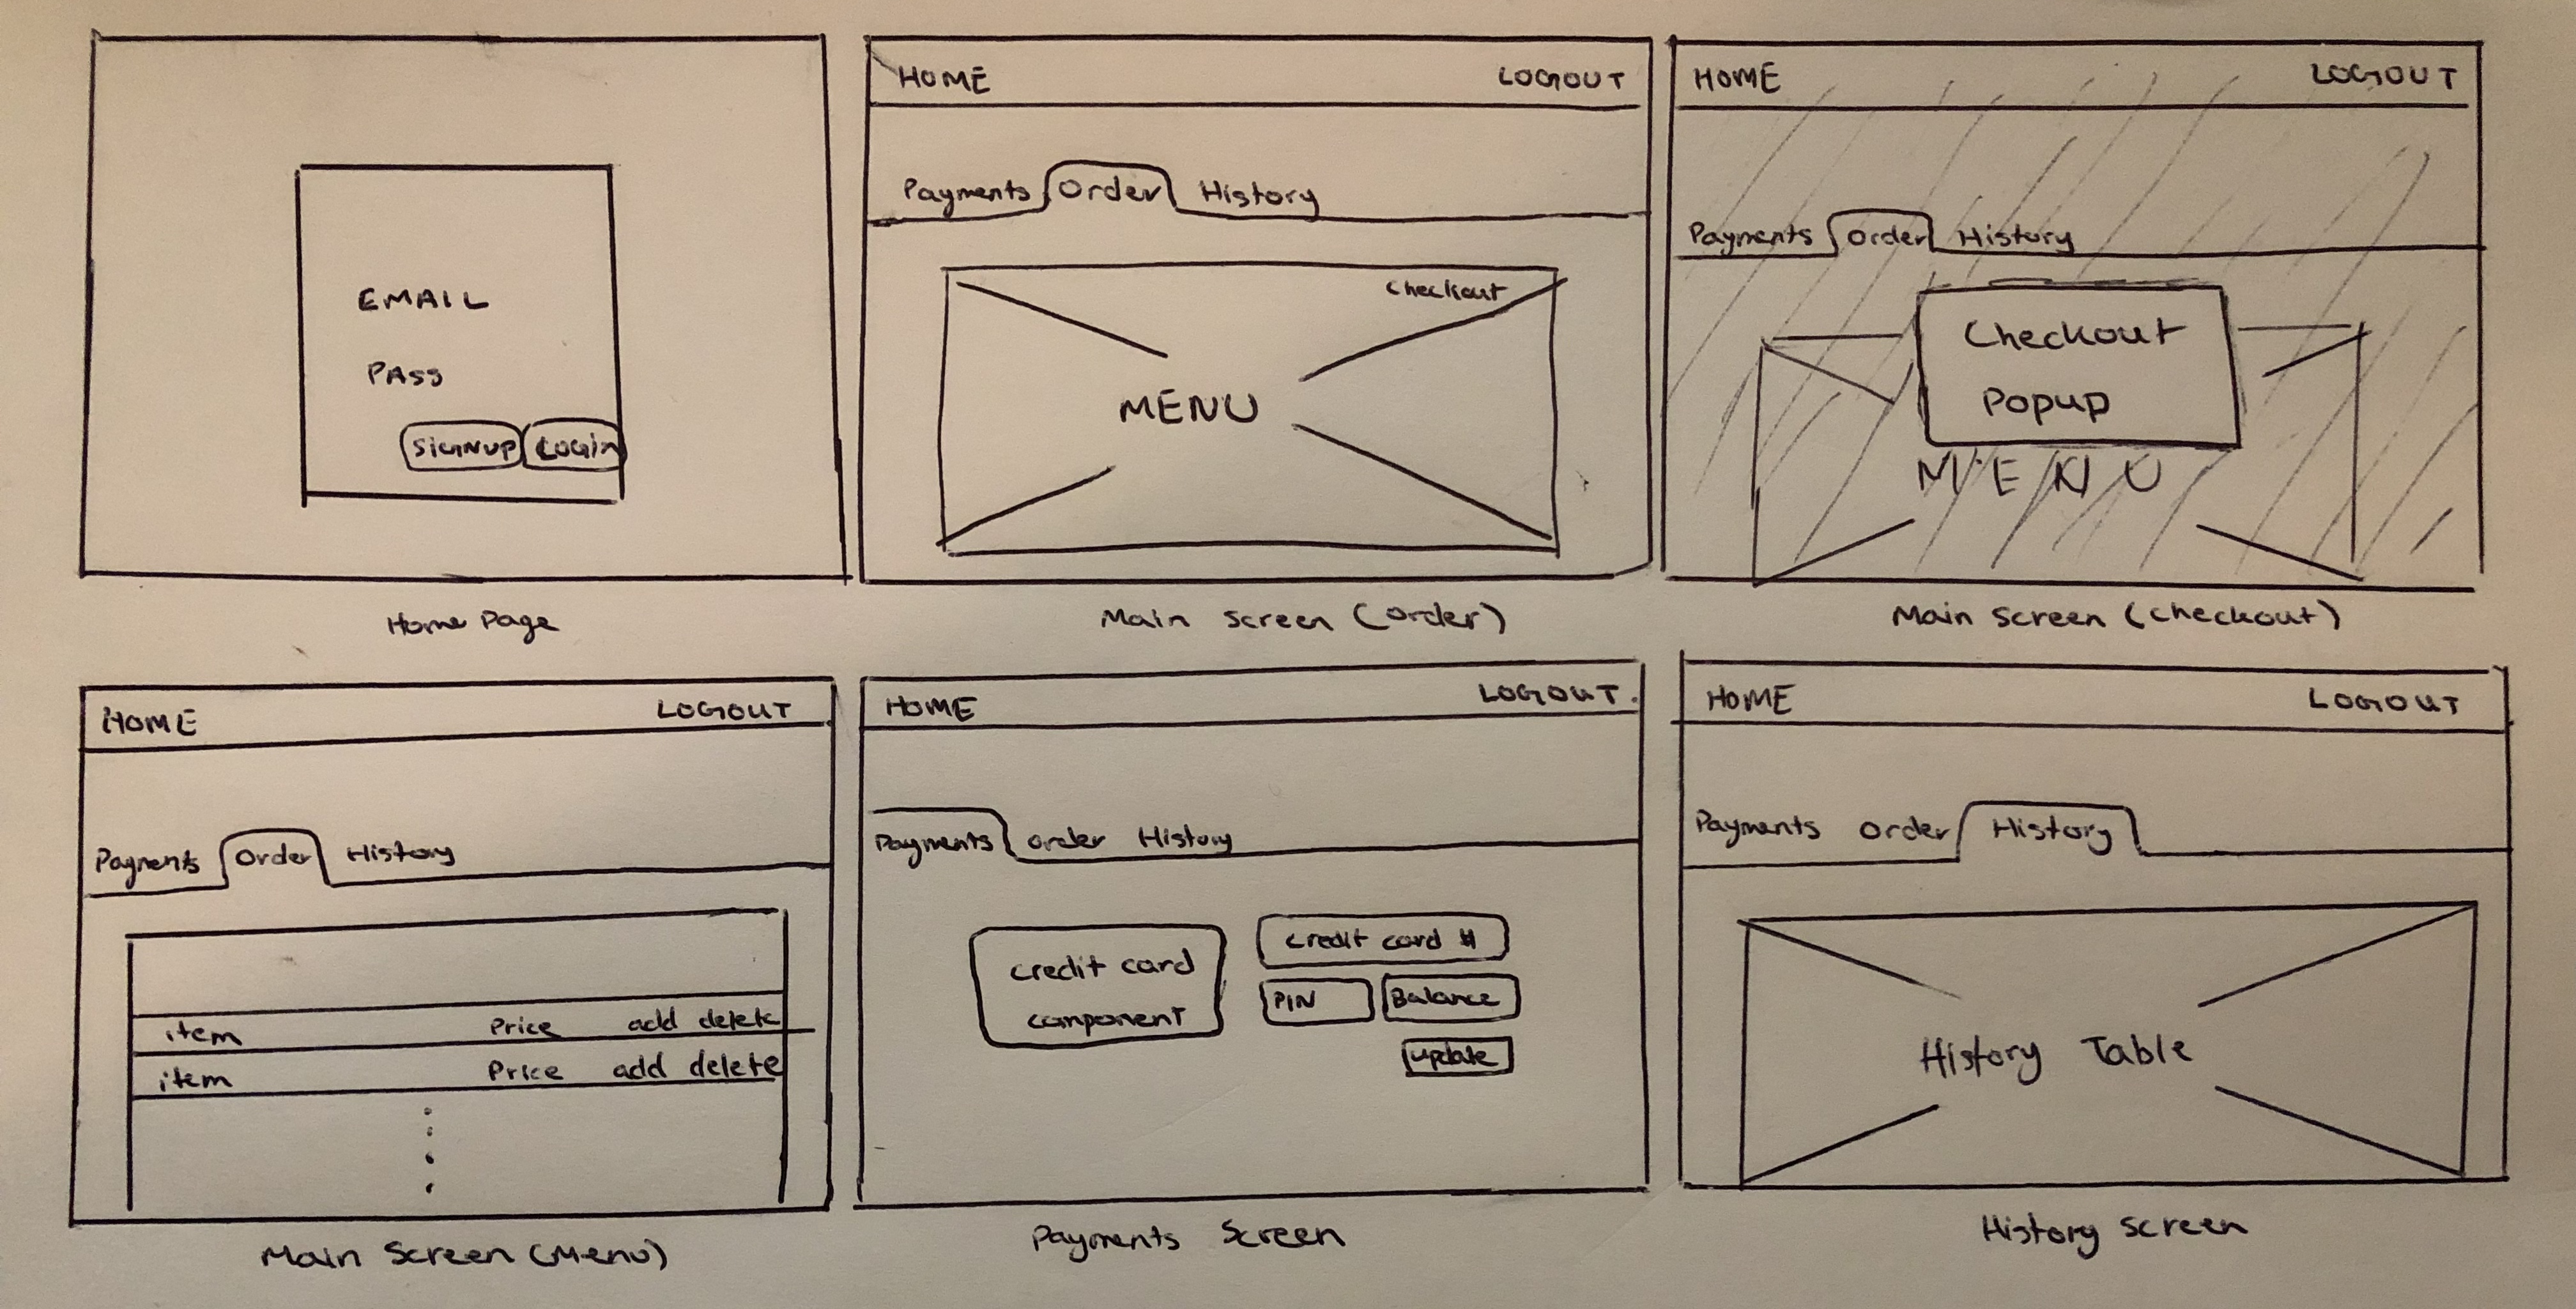 EMAIL
PASS
SIGNUP LOGIN
Home Page
HOME LOGOUT
Payments Order History
Checkout
MENU
Main Screen (order)
HOME LOGOUT
Payments Order History
Checkout
Popup
MENU
Main Screen (checkout)
HOME LOGOUT
Payments Order History
item Price add delete
item Price add delete
Main Screen (Menu)
HOME LOGOUT
Payments order History
credit card
component
credit card #
PIN Balance
update
Payments Screen
HOME LOGOUT
Payments Order History
History Table
History Screen